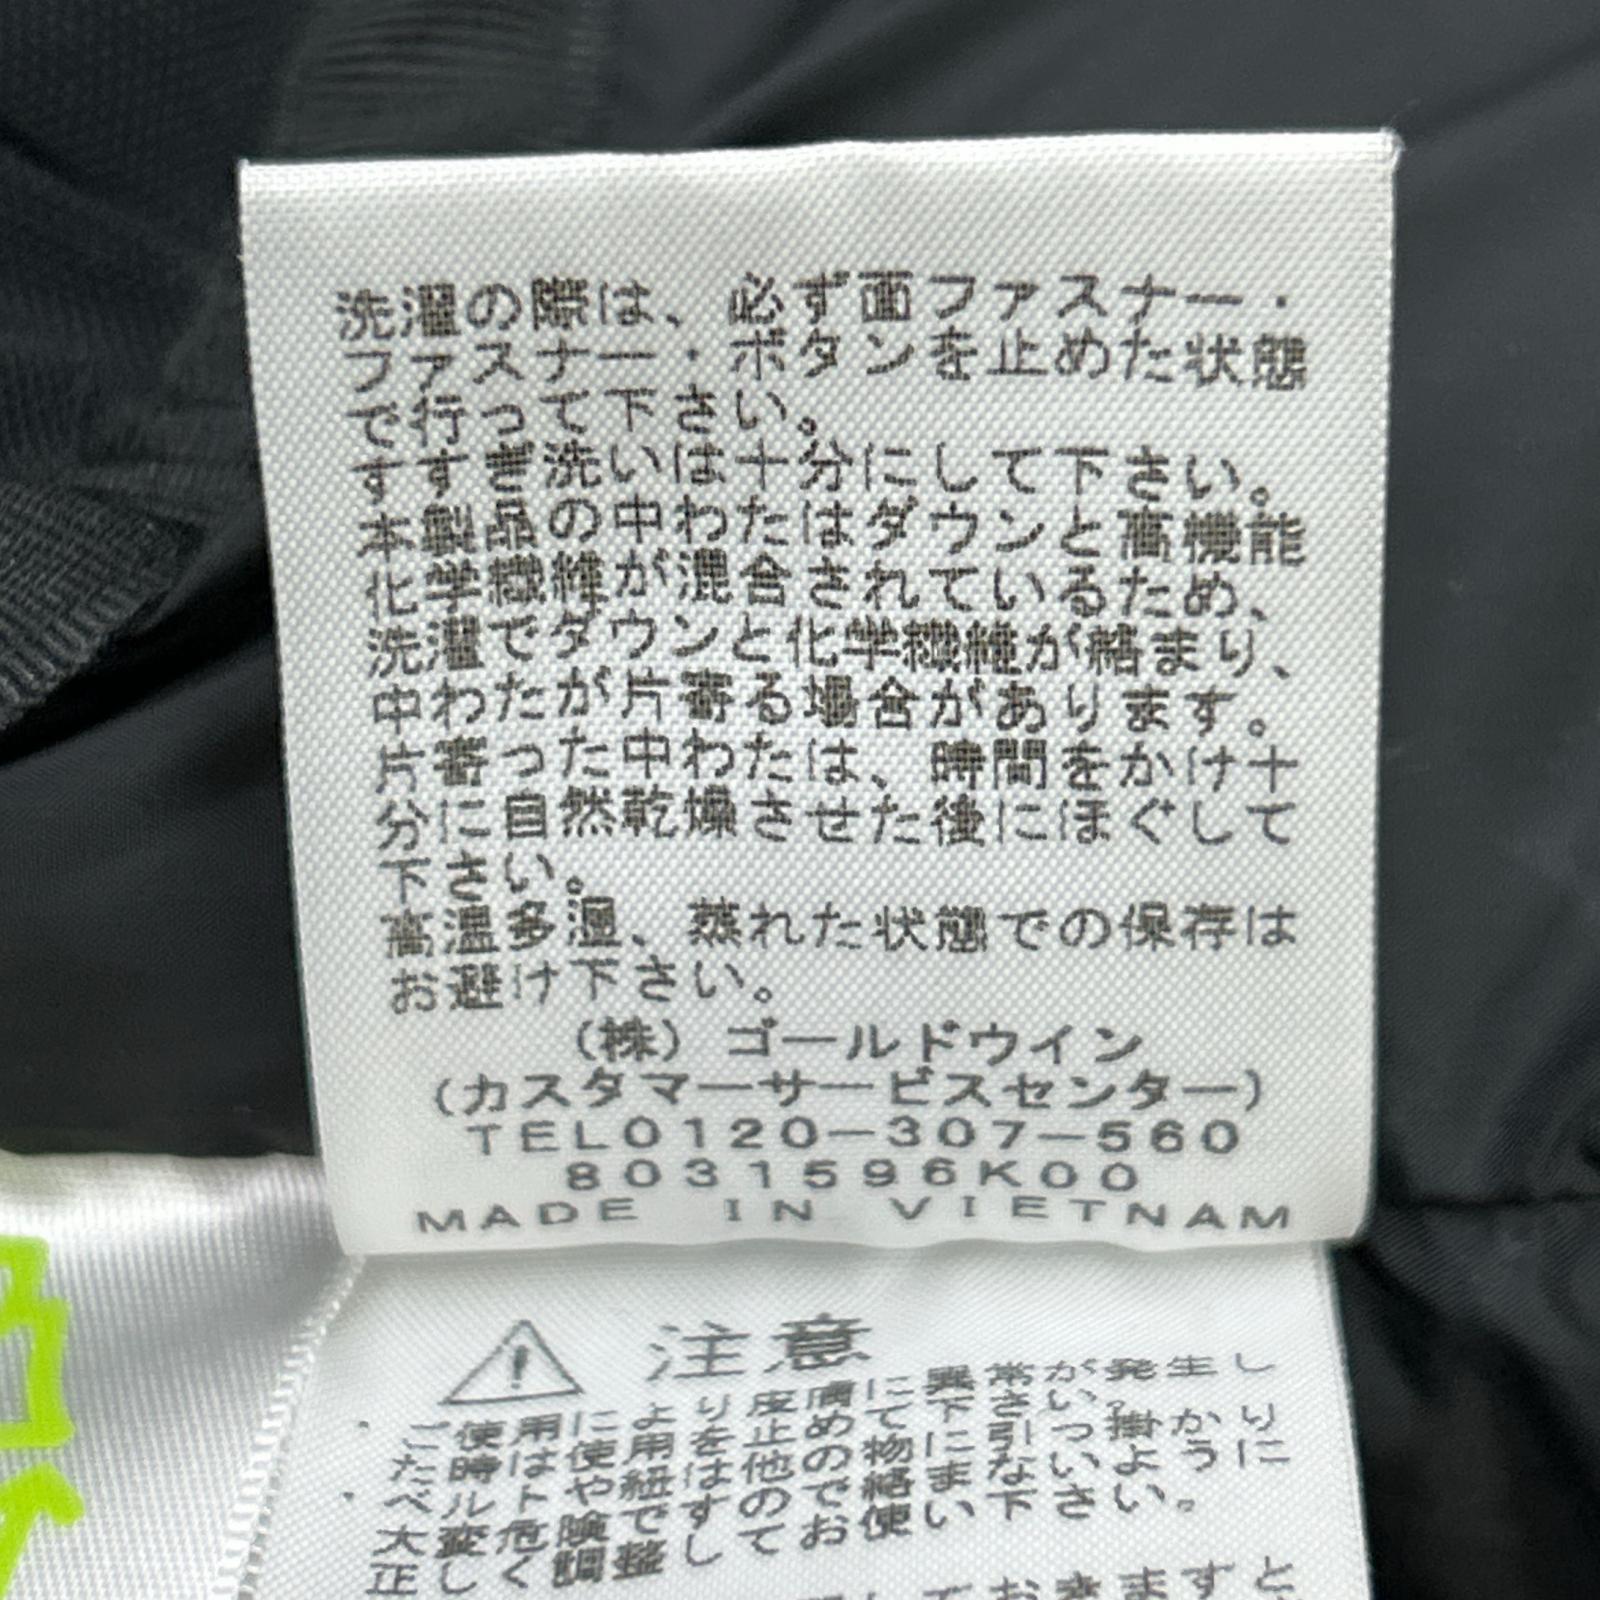 洗濯の際は、必ず面ファスナー・
ファスナー・ボタンを止めた状態
で行って下さい。
すすぎ洗いは十分にして下さい。
本製品の中わたはダウンと高機能
化学繊維が混合されているため、
洗濯でダウンと化学繊維が絡まり、
中わたが片寄る場合があります。
片寄った中わたは、時間をかけ十
分に自然乾燥させた後にほぐして
下さい。
高温多湿、蒸れた状態での保存は
お避け下さい。
(株)ゴールドウイン
(カスタマーサービスセンター)
TEL0120-307-560
8031596K00
MADE IN VIETNAM
注意
・ご使用により皮膚に異常が発生し
た時は使用を止めて下さい。
・ベルトや紐は他の物に引っ掛かり
大変危険ですので絡まないように
正しく調整してお使い下さい。
しておきますと